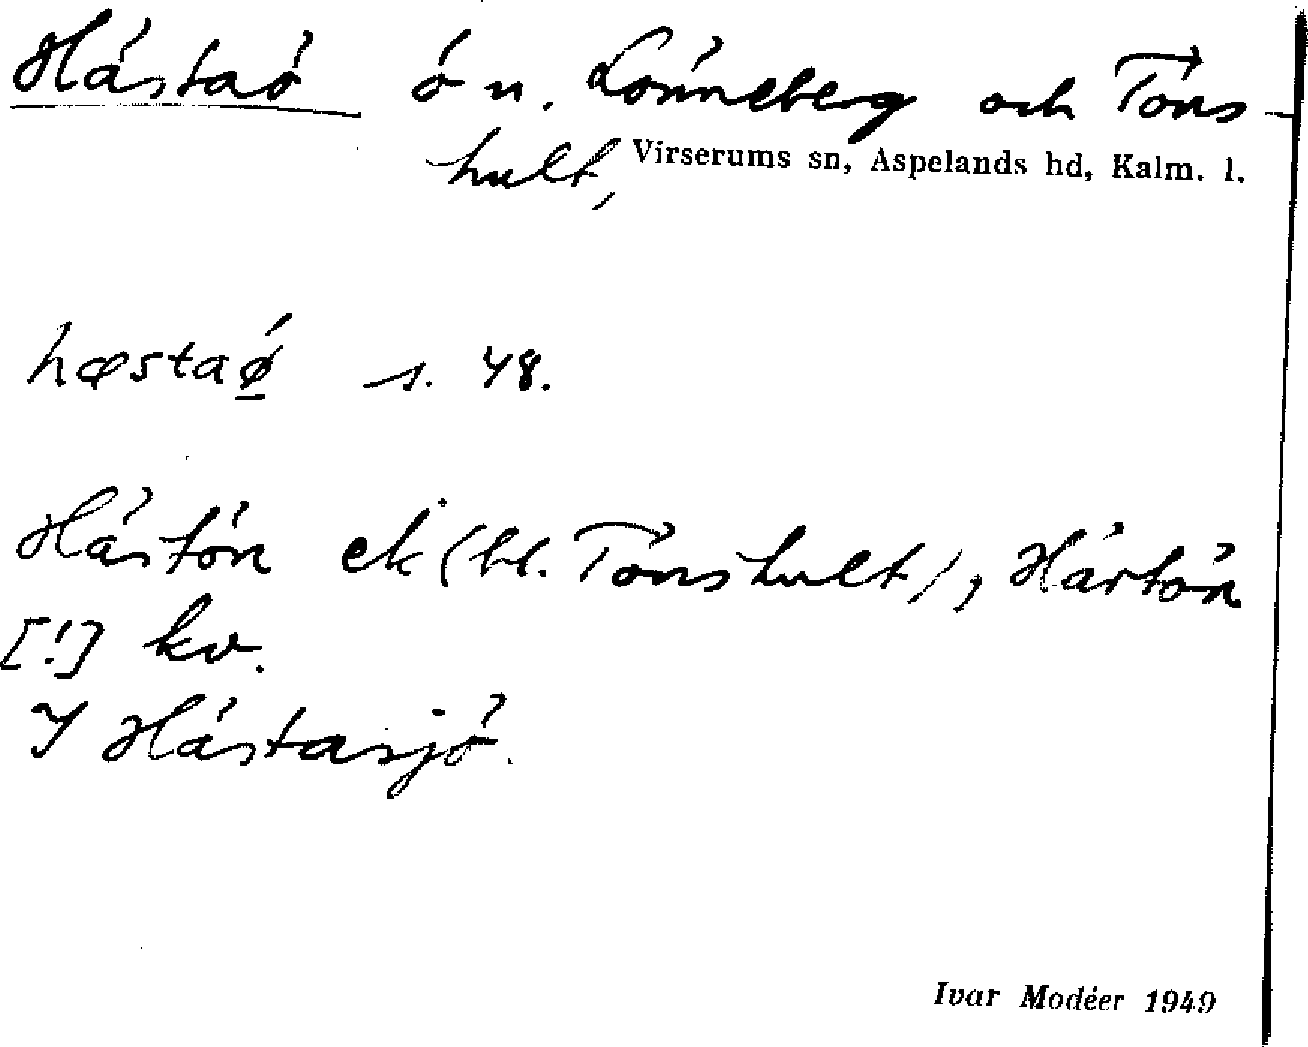 Hästaö ö n. Lönneberg och Töns-
hult, Virserums sn, Aspelands hd, Kalm. l.
hæstaǿ̲ s. 48.
Hästön ek (bl. Tönshult), Härtön
[!] kv.
I Hästasjö.
Ivar Modéer 1949